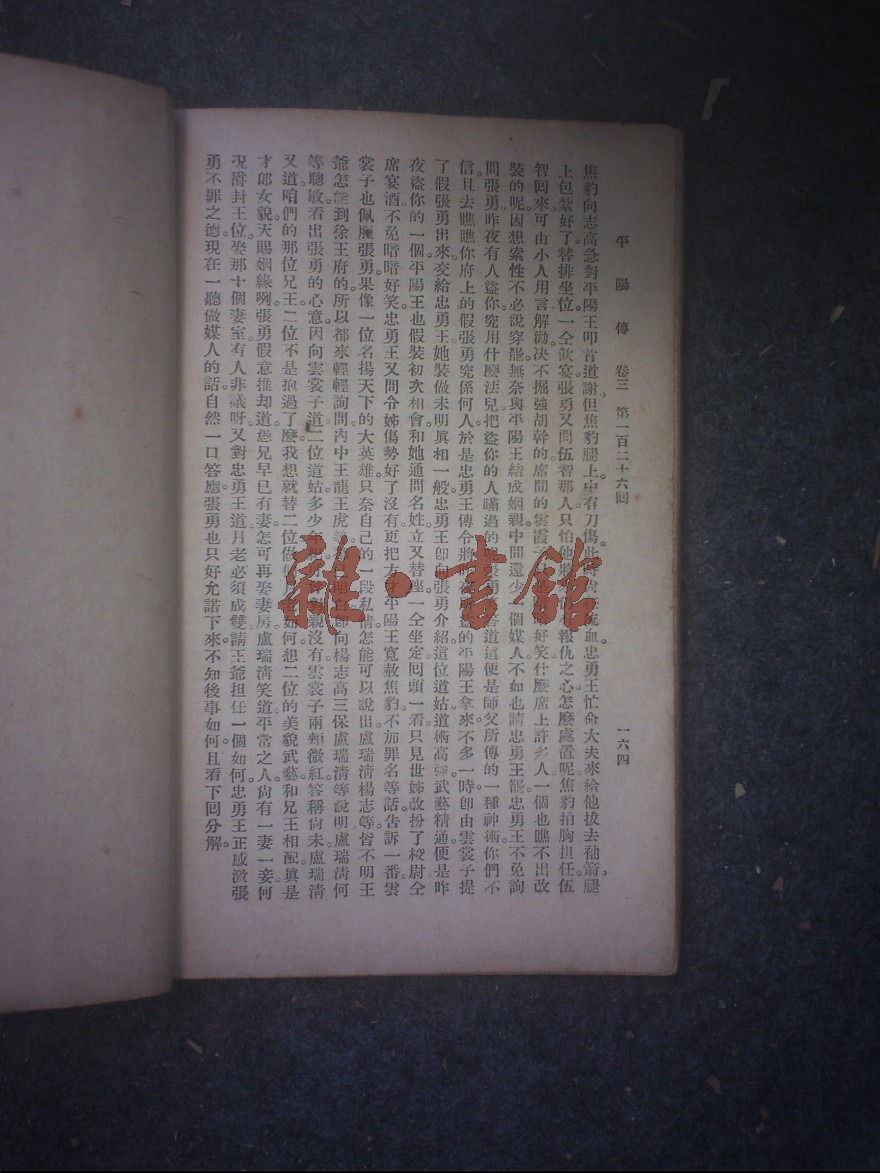 平陽傳　卷三　第一百二十六回　一六四
焦豹向志高急對平陽王叩首道謝但焦豹腿上中有刀傷此時尚血忠勇王忙命大夫來給他拔去袖箭腿
上包紮好了替排坐位一仝飲宴張勇又問伍智那人只怕他將來報仇之心怎麽處置呢焦豹拍胸担任伍
智回來可由小人用言解勸決不掘強胡幹的席間的雲霞子好笑什麽席上許多人一個也瞧不出改
裝的呢因想索性不必說穿罷無奈與平陽王結成姻親中間還少一個媒人不如也請忠勇王罷忠勇王不免詢
問張勇昨夜有人盜你究用什麽法兒把盜你的人瞞過的張勇答道這便是師父所傳的一種神術你們不
信且去瞧瞧你府上的假張勇究係何人於是忠勇王傳令將的平陽王拿來不多一時卽由雲裳子提
了假張勇出來交給忠勇王她裝做未明眞相一般忠勇王卽向張勇介紹這位道姑道術高強武藝精通便是昨
夜盜你的一個平陽王也假裝初次相會和她通問名姓立又替座一仝坐定囘頭一看只見世姊改扮了校尉仝
席宴酒不免暗暗好笑忠勇王又問令姊傷勢好了沒有更把方才平陽王寬赦焦豹不加罪名等話告訴一番雲
裳子也佩服張勇果像一位名揚天下的大英雄只奈自己的一段私情怎能可以說出盧瑞淸楊志等皆不明王
爺怎能到徐王府的所以都來輕輕詢問內中王龍王虎卽向楊志高三保盧瑞淸等說明盧瑞淸何
等聰敏看出張勇的心意因向雲裳子道二位道姑多少年親沒有雲裳子兩頰微紅答稱尙未盧瑞淸
又道咱們的那位兄王二位不是抱過了麽我想就替二位做如何想二位的美貌武藝和兄王相配眞是
才郎女貌天賜姻緣咧張勇假意推却道愚兄早已有妻怎可再娶妻房盧瑞淸笑道平常之人尙有一妻一妾何
况爵封王位娶那十個妻室有人非議呀又對忠勇王道月老必須成雙請王爺担任一個如何忠勇王正感激張
勇不罪之德現在一聽做媒人的話自然一口答應張勇也只好允諾下來不知後事如何且看下囘分解
雜·書館